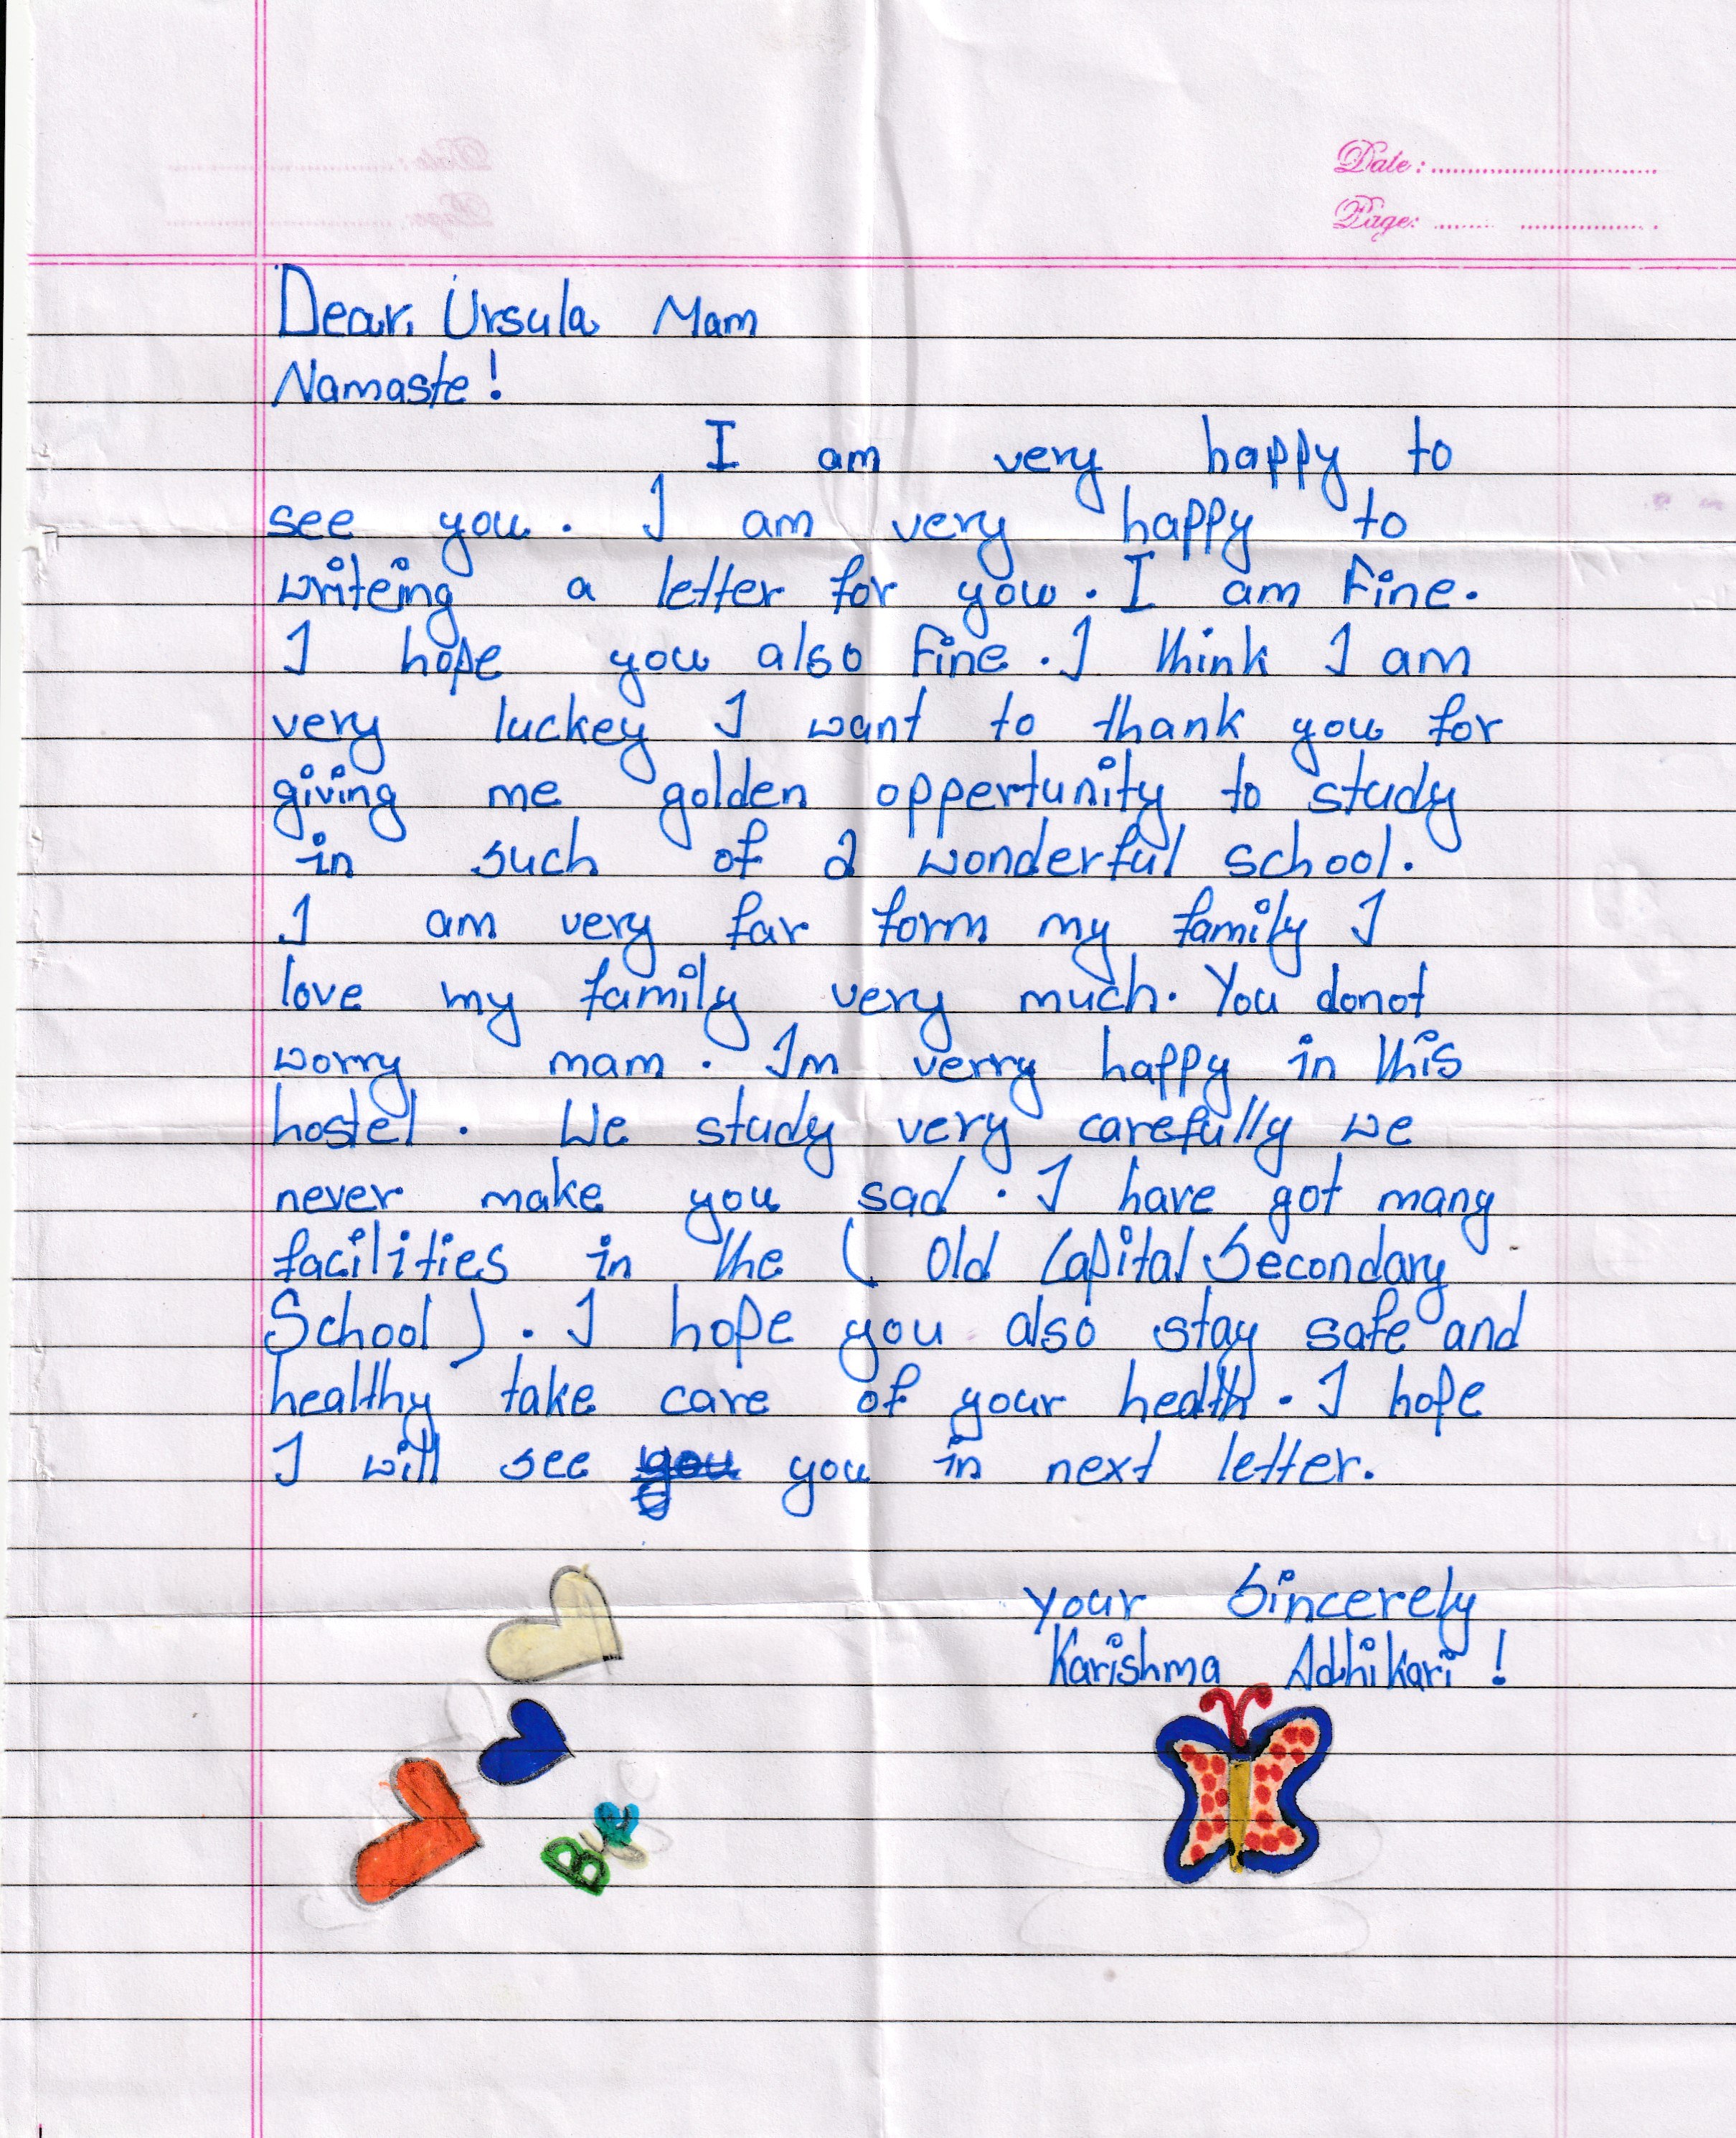 Date: ..............................
Page: ........ ..................
Dear, Ursula Mam
Namaste!
I am very happy to
see you. I am very happy to
writeing a letter for you. I am Fine.
I hope you also Fine. I think I am
very luckey I want to thank you for
giving me golden oppertunity to study
in such of a wonderful school.
I am very far form my family I
love my family very much. You donot
worry mam. Im verry happy in this
hostel. We study very carefully we
never make you sad. I have got many
facilities in the ( Old Capital Secondary
School ). I hope you also stay safe and
healthy take care of your health. I hope
I will see you you in next letter.
your Sincerely
Karishma Adhikari !
Bye